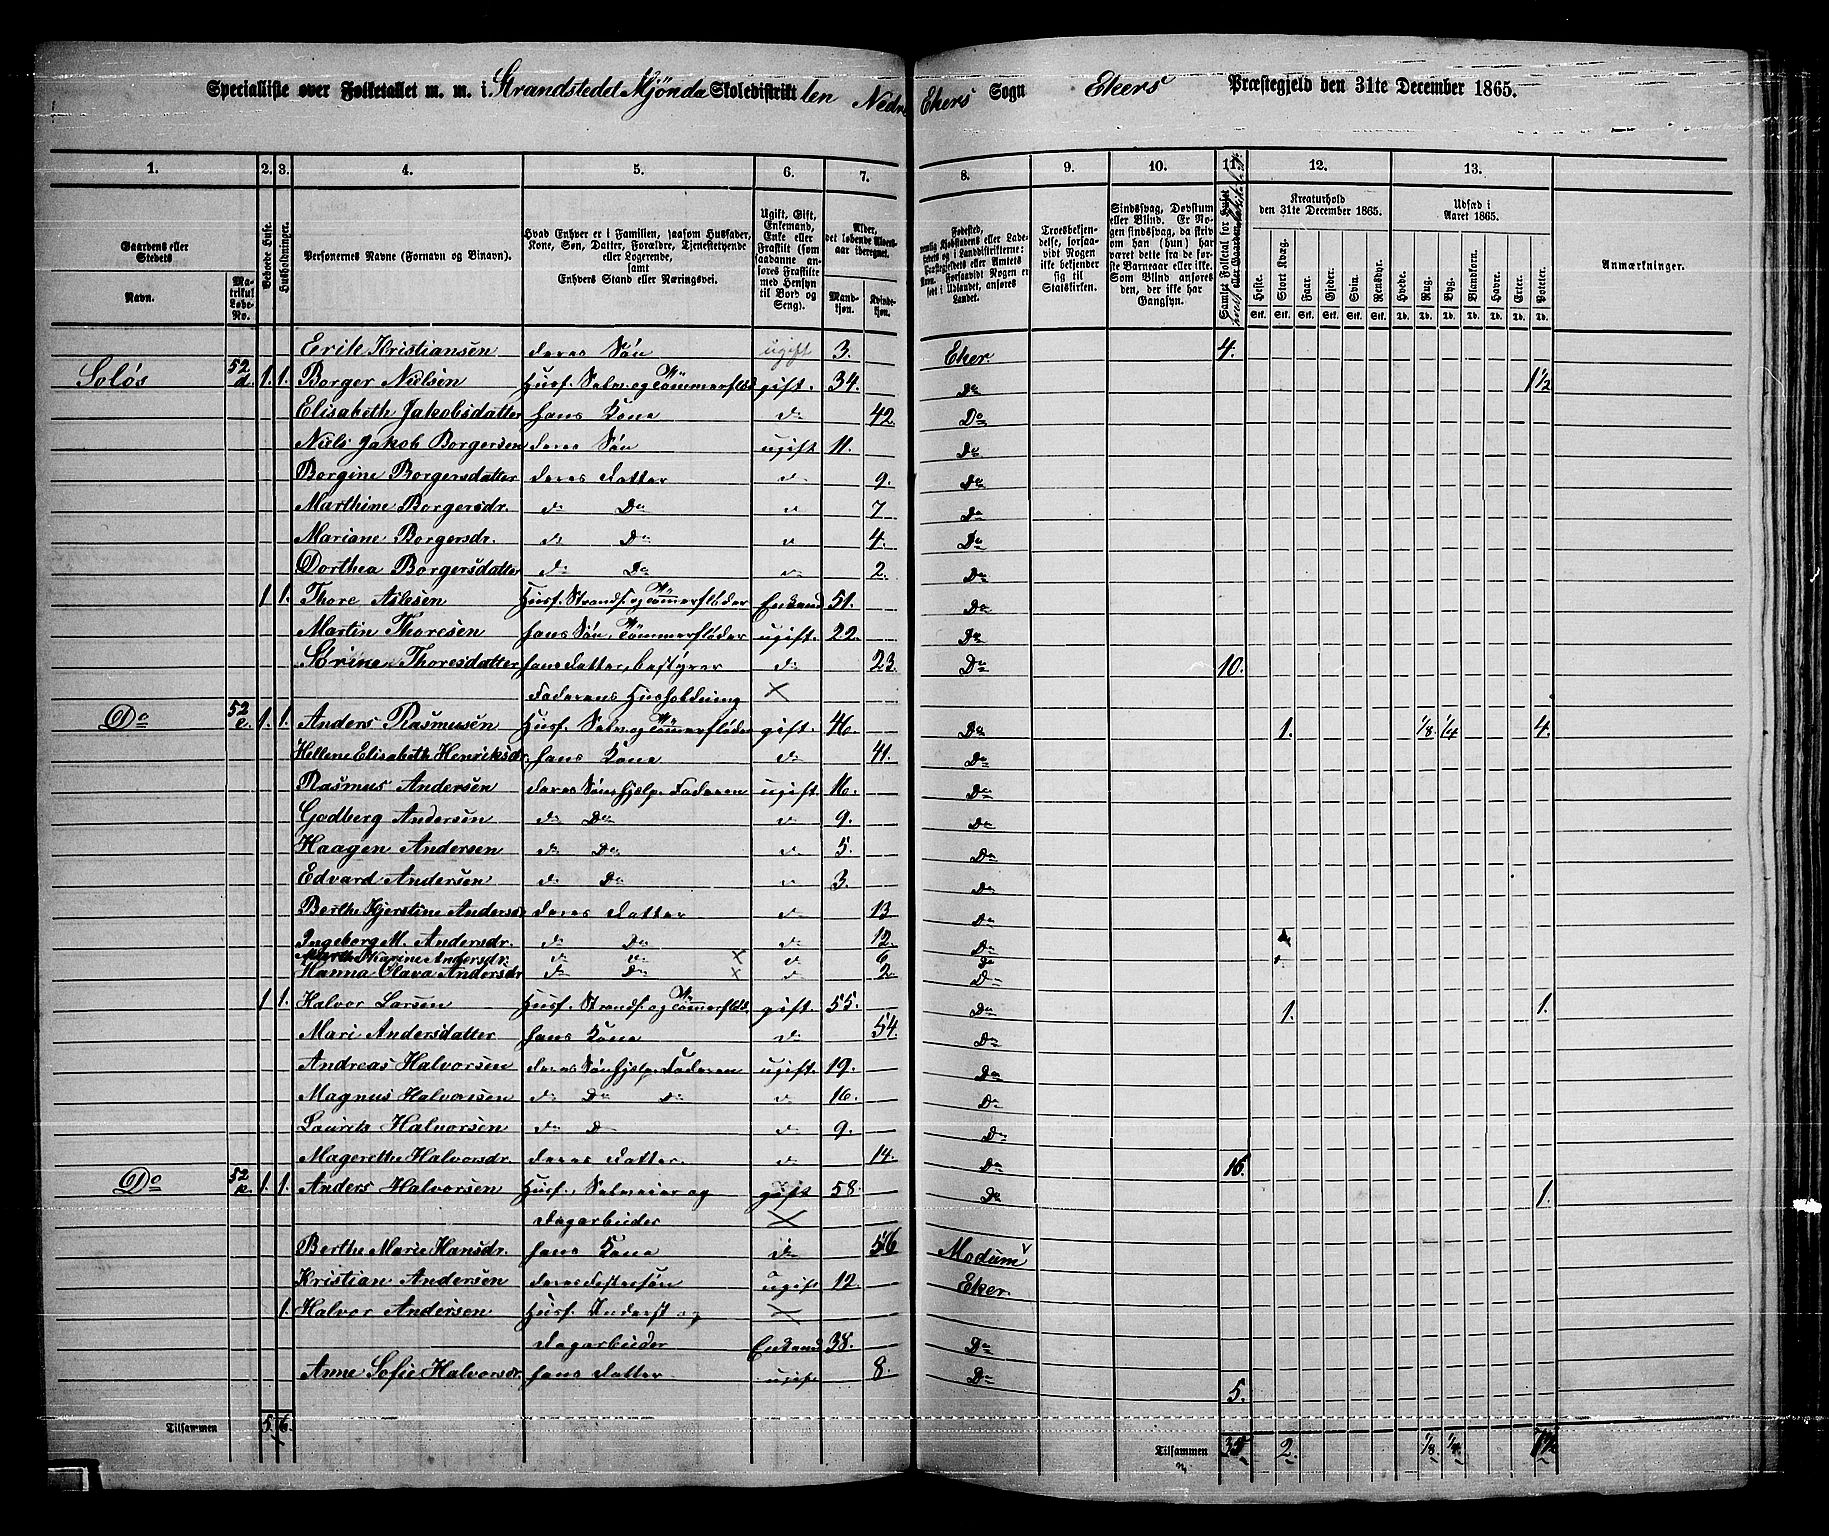 Specialliste over Folketallet m. m. i Strandstedet Mjøndalen Skoledistrikt Nedre Ekers Sogn Ekers Præstegjeld den 31te December 1865.
1. 2. 3. 4. 5. 6. 7. 8. 9. 10. 11. 12. 13.
Gaardens eller Stedets
Navn.
Matrikul Løbe-No.
Beboede Huse.
Husholdninger.
Personernes Navne (Fornavn og Binavn).
Hvad Enhver er i Familien, saasom Husfader, Kone, Søn, Datter, Forældre, Tjenestetyende eller Logerende, samt Enhvers Stand eller Næringsvei.
Ugift, Gift, Enkemand, Enke eller Fraskilt (som saadanne anføres Fraskilte med Hensyn til Bord og Seng).
Alder, det løbende Aldersaar iberegnet.
Mandkjøn.
Kvindekjøn.
Fødested,
Troesbekjendelse, forsaavidt Nogen ikke bekjender sig til Statskirken.
Sindssvag, Døvstum eller Blind. Er Nogen sindssvag, da skriv om han (hun) har været dette fra de første Barneaar eller ikke. Som Blind anføres den, der ikke har Gangsyn.
Kreaturhold den 31te December 1865.
Heste. Stort Kvæg. Faar. Gjeder. Svin. Rensdyr.
Udsæd i Aaret 1865.
Hvede. Rug. Byg. Blandkorn. Havre. Erter. Poteter.
Anmærkninger.
Erik Kristiansen deres Søn ugift 3. Eker. 4.
Soløs 52 d. 1. 1. Borger Nielsen gift. 34. Do 1 1/2
Elisabeth Jakobsdatter hans Kone do 42. Do
Niels Jakob Borgersen deres Søn ugift 11. Do
Borgine Borgersdatter deres Datter do 9. Do
Marthine Borgersdr. do Do do 7 Do
Mariane Borgersdr. do Do do 4. Do
Dorthea Borgersdatter do Do do 2. Do
1 1. Thore Aslesen Husf. Strands. og Tømmerfløder Enkemd 51. Do
Martin Thoresen hans Søn, Tømmerfløder ugift. 22. Do
Thoresdatter hans Datter, bestyrer do 23. Do 10.
Faderens Husholdning
Do 52 e. 1. 1. Anders Rasmusen gift. 46. Do 1. 1/8. 1/4 4.
Hellene Elisabeth Henriksdr. hans Kone do 41. Do
Rasmus Andersen deres Søn, hjelp. Faderen ugift. 16. Do
Godberg Andersen do Do do 9. Do
Haagen Andersen do Do do 5. Do
Edvard Andersen do Do do 3. Do
Berthe Kjerstine Andersdr deres Datter do 13 Do
Ingeborg M. Andersdr. do Do do 12. Do
Karine Andersdr. do do × do 6 do
Hanna Olava Andersdr do Do × do 2. Do
1. 1. Halvor Larsen Husf. Strands. og Tømmerflød. gift. 55. Do 1. 1.
Mari Andersdatter hans Kone do 54. Do
Andreas Halvorsen deres Søn hjelp. Faderen ugift. 19. Do
Magnus Halvorsen do Do Do do 16. Do
Laurits Halvorsen do Do do 9. Do
Magerethe Halvorsdr. deres Datter. do 14. Do 16.
Do 52 k. 1. 1. Anders Halvorsen Husf. Selveier og gift 58. Do 1.
Dagarbeider
Berthe Marie Hansdr. hans Kone do 56 Modum
Kristian Andersen deres Pleiesøn ugift 12. Eker.
1. Halvor Andersen Husf. Inderst og
Dagarbeider Enkemd 38. Do
Anne Sofie Halvorsdr. hans Datter ugift 8. Do 5.
Tilsammen 5 6. Tilsammen 2. 1/8. 1/4.